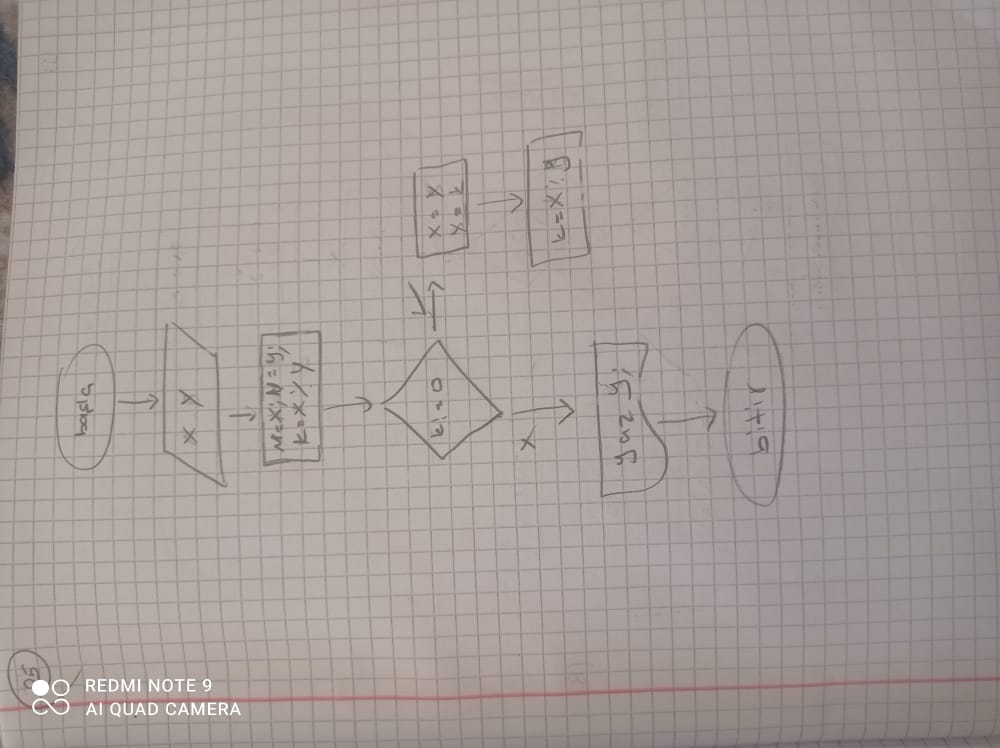 05
başla
x y
M=X; N=Y;
K=X%Y
k!=0
x = y
y = k
k=x%y
X
yaz y;
bitir
REDMI NOTE 9
AI QUAD CAMERA